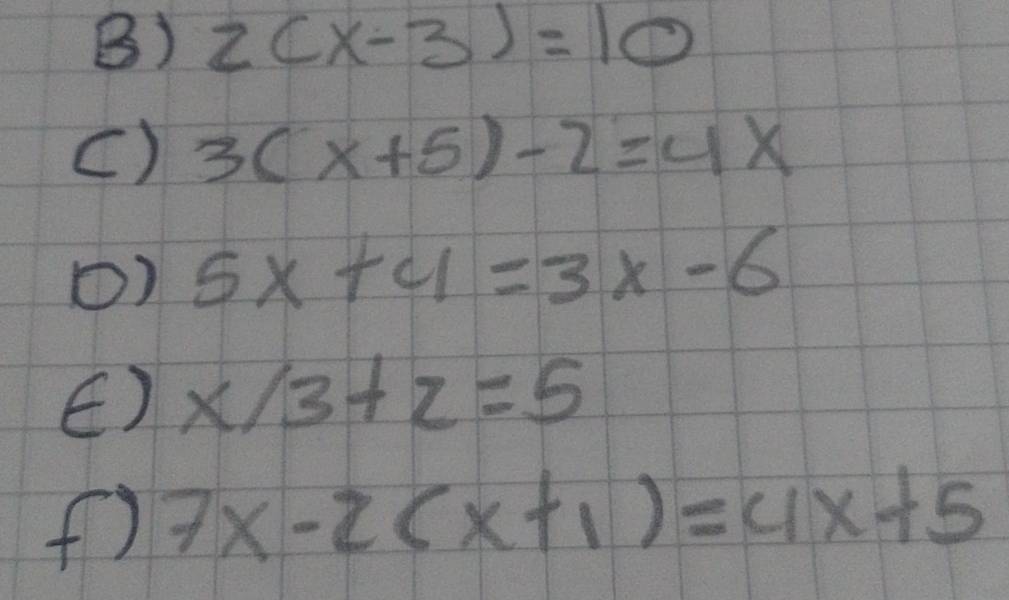 B) 2(x-3)=10
C) 3(x+5)-2=4x
D) 5x+4=3x-6
E) x/3+2=5
f) 7x-2(x+1)=4x+5